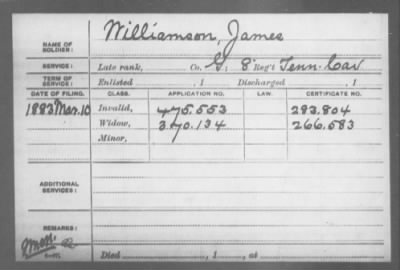 Williamson, James
NAME OF SOLDIER:
SERVICE: Late rank, Co. G, 8 Reg't Tenn. Cav
TERM OF SERVICE: Enlisted , 1 Discharged , 1
DATE OF FILING. CLASS. APPLICATION NO. LAW. CERTIFICATE NO.
1883 Mar. 10 Invalid, 475.553 283.804
Widow, 370.134 266.583
Minor,
ADDITIONAL SERVICES:
REMARKS:
Died , 1 , at